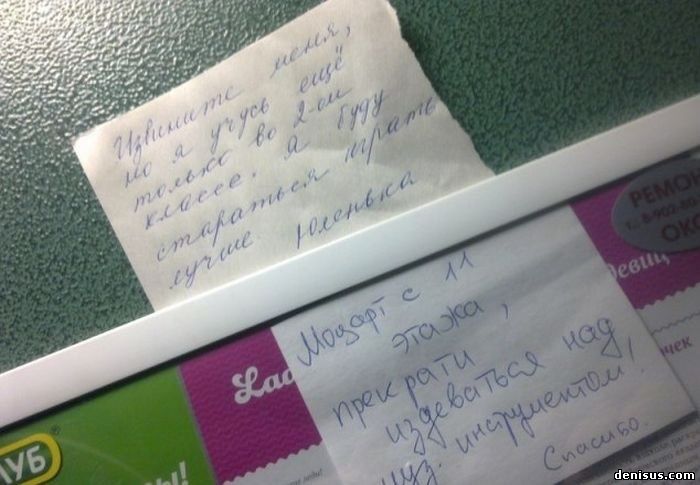 Извините меня,
но я учусь ещё
только во 2-ом
классе. Я буду
стараться играть
лучше Юленька
Моцарт с 11
этажа,
прекрати
издеваться над
муз. инструментом,
Спасибо.
РЕМОН
ОКО
Lad
УБ
denisus.com